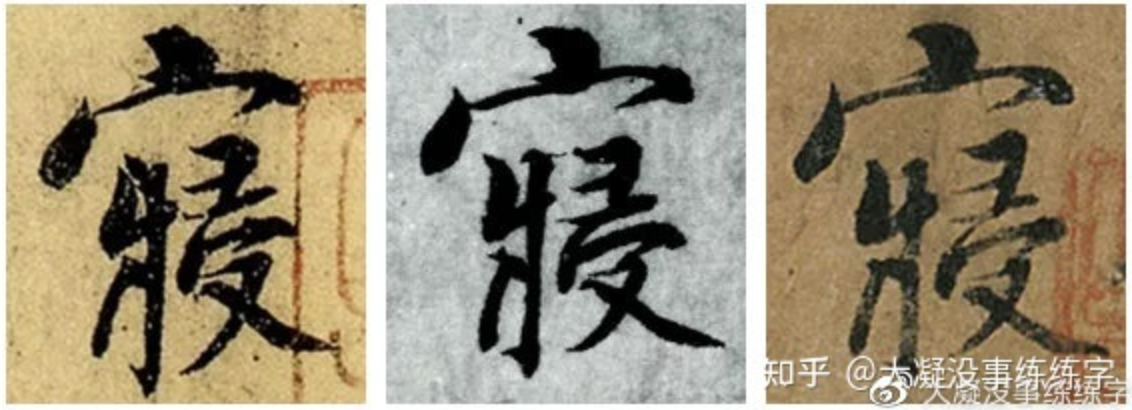 寢 寢 寢
知乎 @大凝没事练练字
大凝没事练练字